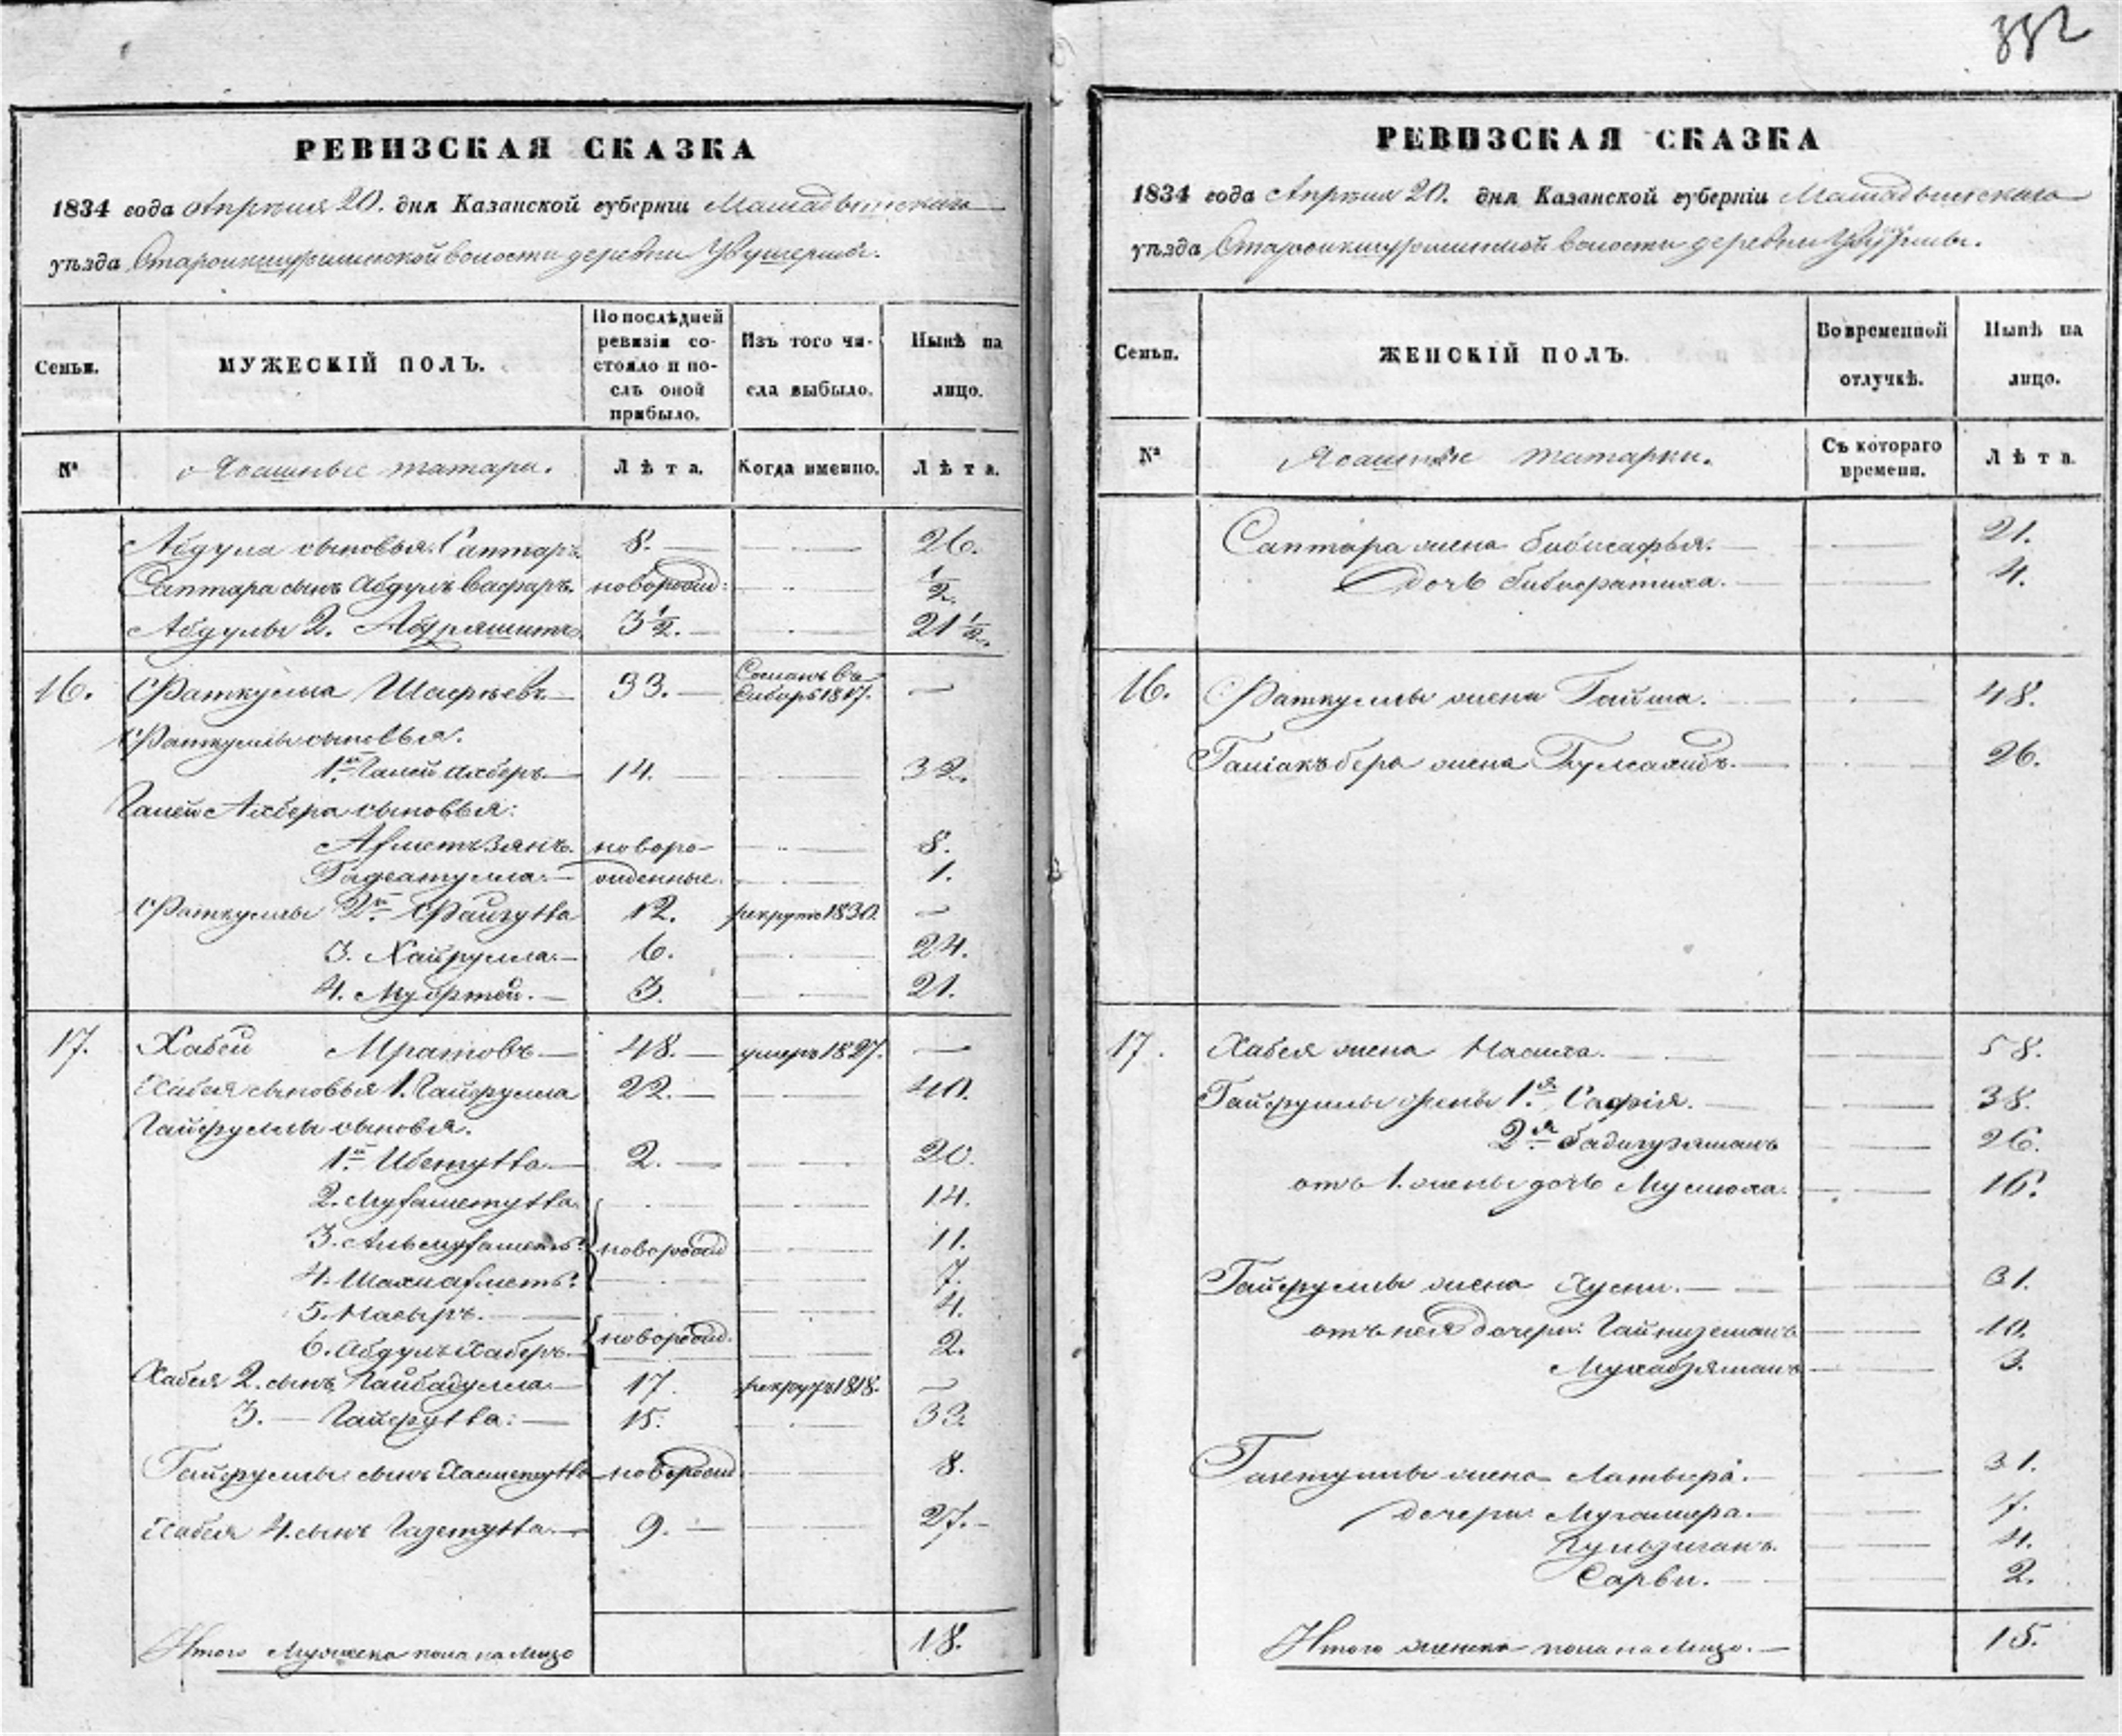 332
РЕВИЗСКАЯ СКАЗКА
1834 года Апреля 20. дня Казанской губернiи Мамадышскаго
уѣзда Староикшурминской волости деревни
Семьи.
МУЖЕСКІЙ ПОЛЪ.
По послѣдней ревизіи со-стояло и по-слѣ оной прибыло.
Изъ того чи-сла выбыло.
Нынѣ на лицо.
№
Ясашные татары.
Лѣта.
Когда именно.
Лѣта.
Абдула сыновья: Саптаръ 8. 26.
Саптара сынъ Абдулъ Вафаръ. новорожд: 1/2
Абдулы 2. Абдряшитъ 3 1/2. 21 1/2.
16. Фаткулла 33. Сосланъ въ Сибирь 1817.
Фаткуллы сыновья.
1й Галей Акберъ 14. 32.
Галей Акбера сыновья:
Ахметьзянъ. новоро- 8.
жденные. 1.
Фаткуллы 2й 12. рекрутъ 1830.
3. Хайрулла. 6. 24.
4. 3. 21.
17. Хабей Мратовъ 48. умеръ 1827.
Хабея сыновья 1. Гайфулла 22. 40.
Гайфуллы сыновья.
1й 2. 20.
2. Мухаметулла 14.
3. Альмухаметъ новорожд 11.
4. Шахиахметъ 7.
5. Насыръ. 4.
6. Абдулъ Хаберъ новорожд. 2.
Хабея 2. сынъ Гайбадулла 17. рекрутъ 1818.
3. 15. 33.
сынъ новорожд 8.
Хабея 4. сынъ Газетулла. 9. 27.
Итого Мужеска пола на лицо 18.
РЕВИЗСКАЯ СКАЗКА
1834 года Апреля 20. дня Казанской губернiи Мамадышскаго
уѣзда Староикшурминской волости деревни
Семьи.
ЖЕНСКІЙ ПОЛЪ.
Во временной отлучкѣ.
Нынѣ на лицо.
№
Ясашныя татарки.
Съ котораго времени.
Лѣта.
Саптара жена Бибисафья. 21.
дочь 4.
16. Фаткуллы жена Гайша. 48.
Галіакъбера жена 26.
17. Хабея жена 58.
Гайфуллы жены 1я Сафія. 38.
2я Бадигузямалъ 26.
отъ 1. жены дочь 16.
жена Хусни. 31.
отъ нея дочери: 10.
3.
жена 31.
дочери: 7.
4.
Сарви. 2.
Итого женска пола на лицо. 15.